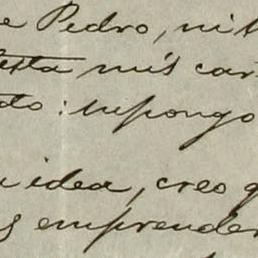 e Pedro, ni t
esta mis car
do: supongo
idea, creo q
s emprender